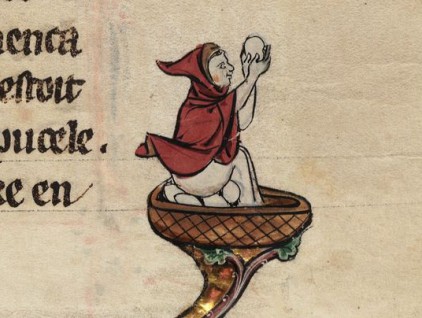 menca
estoit
pucele.
re en